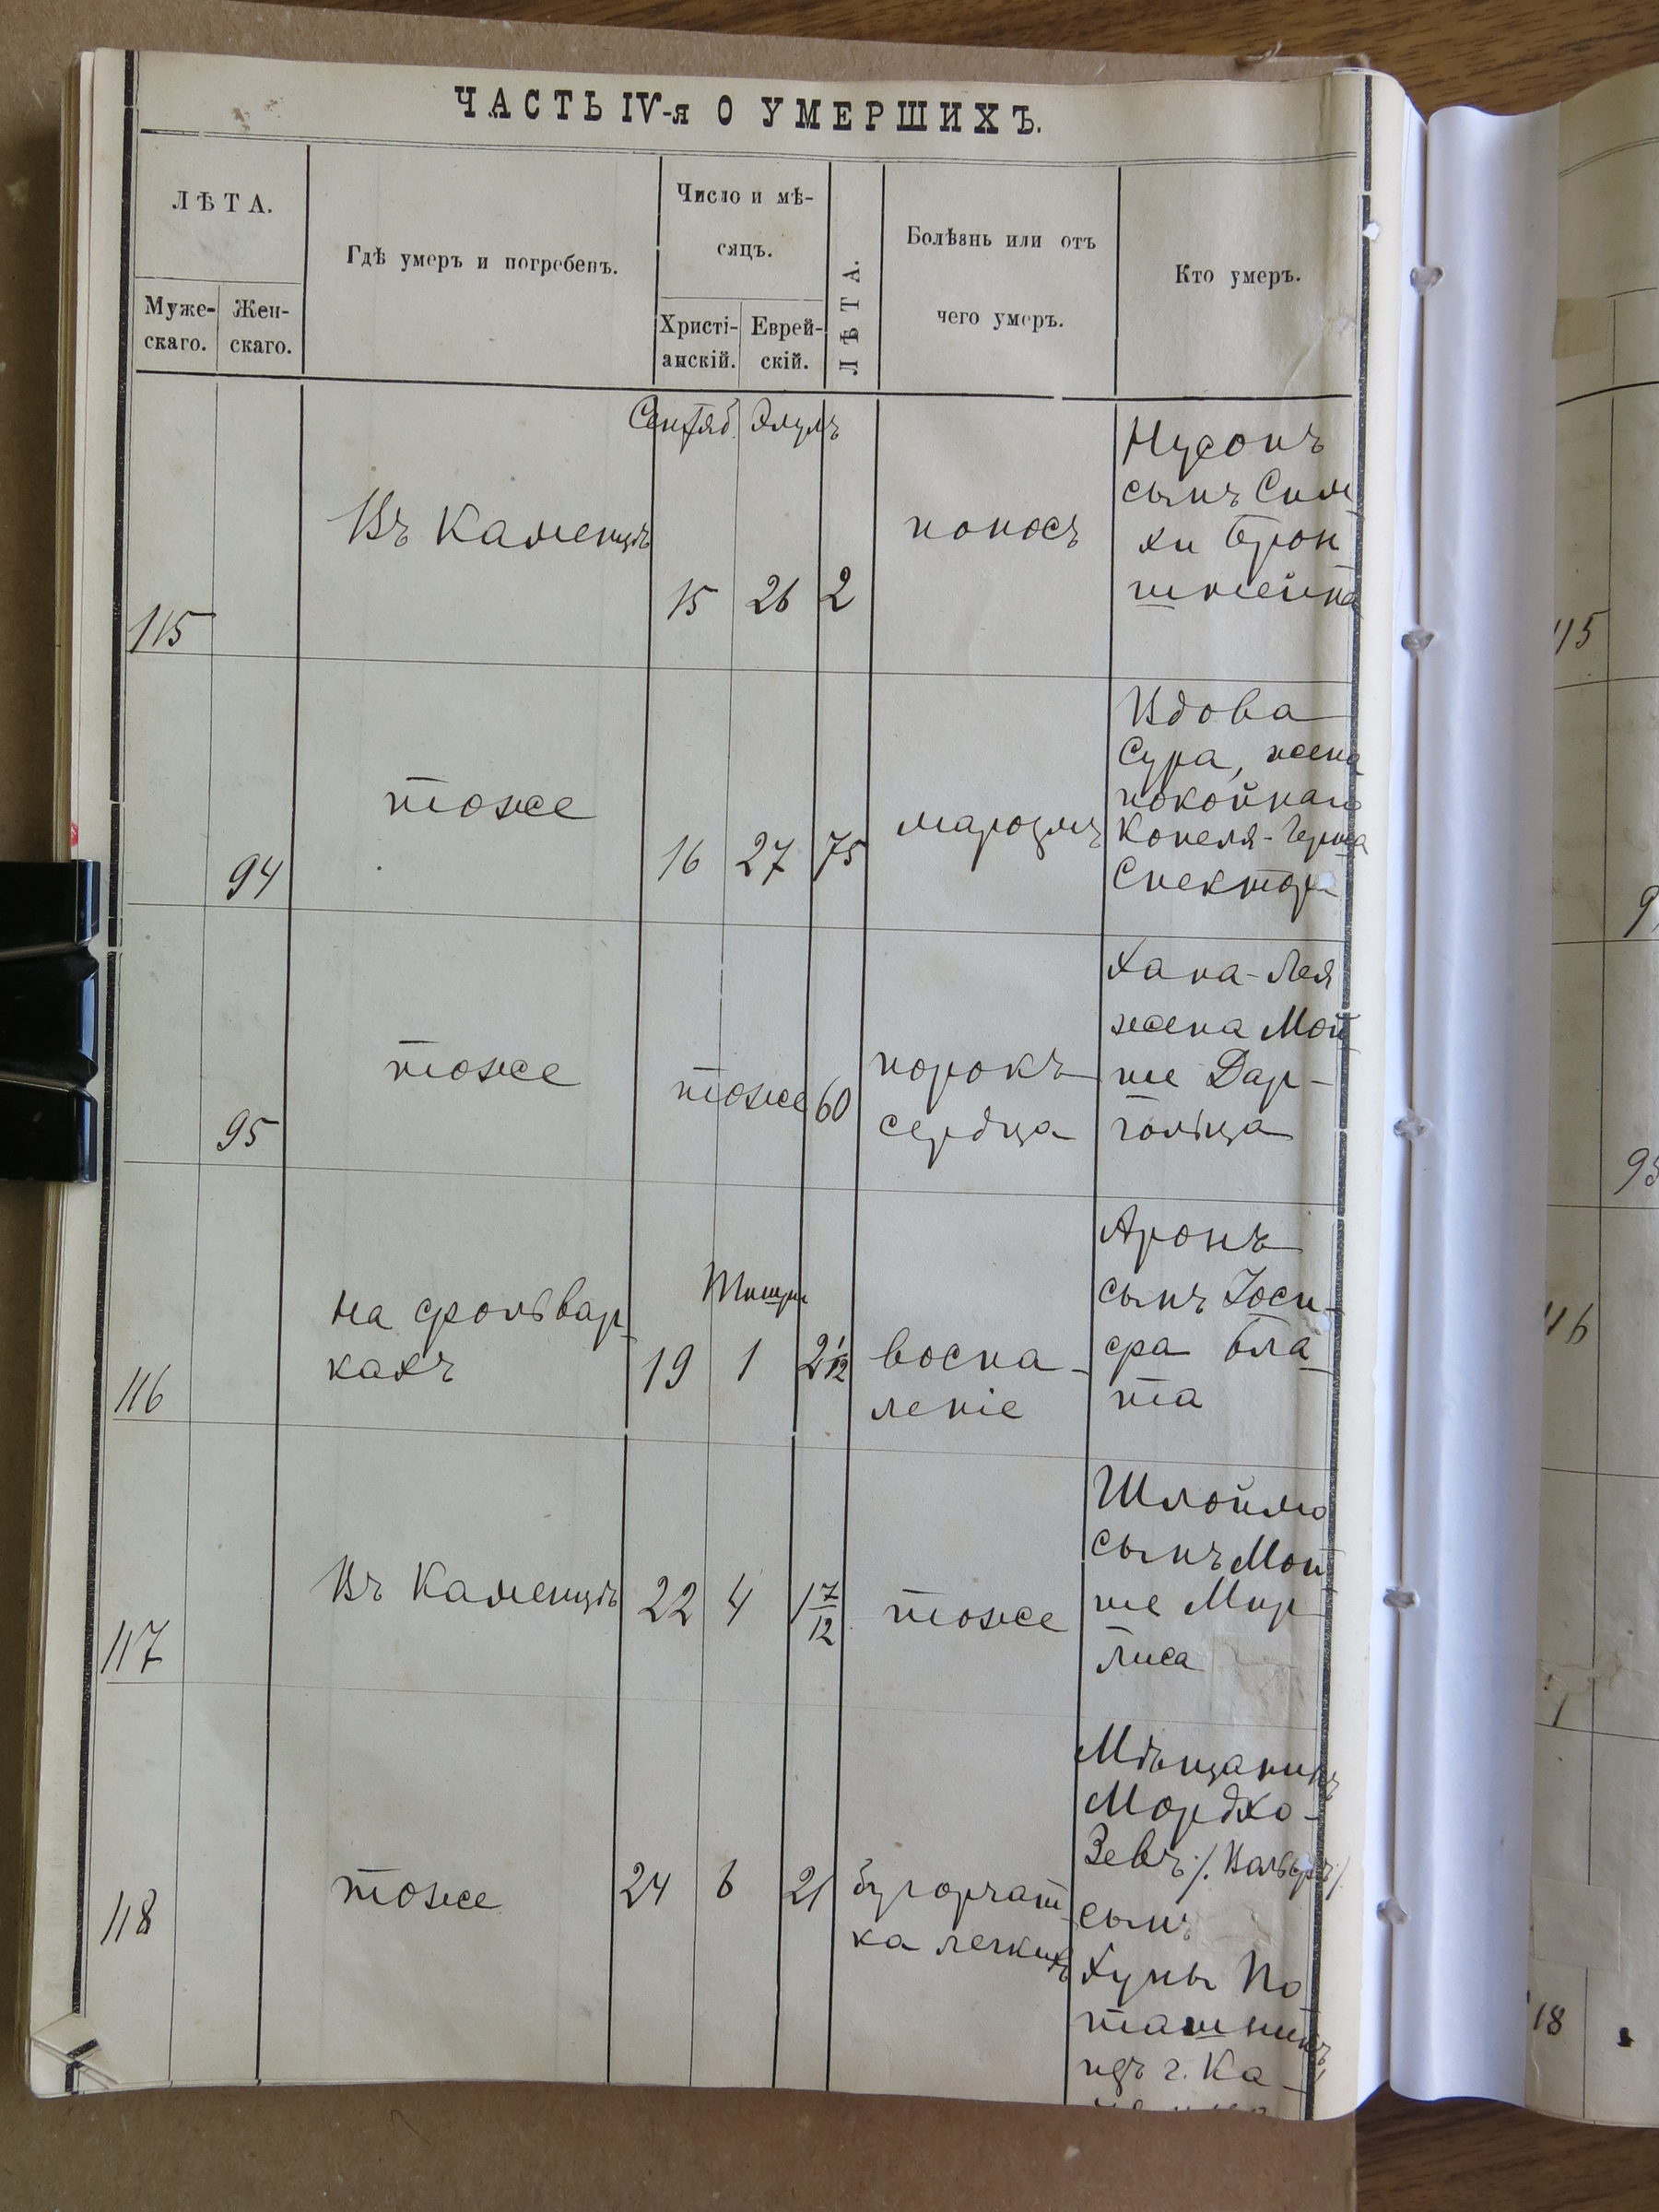 ЧАСТЬ IV-я О УМЕРШИХЪ.
ЛѢТА.
Муже-
скаго.
Жен-
скаго.
Гдѣ умеръ и погребенъ.
Число и мѣ-
сяцъ.
Христі-
анскій.
Еврей-
скій.
ЛѢТА.
Болѣзнь или отъ
чего умеръ.
Кто умеръ.
Сентяб. Элулъ
115
Въ Каменцѣ
15 26 2
поносъ
Нусонъ
сынъ Сим
хи Брон
штейна
94
тоже
16 27 75
маразмъ
Вдова
Сура, жена
покойнаго
Копеля-Герша
Спектора
95
тоже
тоже 60
порокъ
сердца
Хана-Лея
жена Мой
ше Дар-
гольца
Тишри
116
на фольвар
кахъ
19 1 2 1/12
воспа-
леніе
Аронъ
сынъ Іоси-
фа Бла
та
117
Въ Каменцѣ
22 4 1 7/12
тоже
Шлойма
сынъ Мой
ше Мир
лиса
118
тоже
24 6 21
бугорчат
ка легкихъ
Мѣщанинъ
Мордхо-
Зевъ /. Вольфъ ./
сынъ
Хуны По
ташникъ
изъ г. Ка-
115
95
116
118